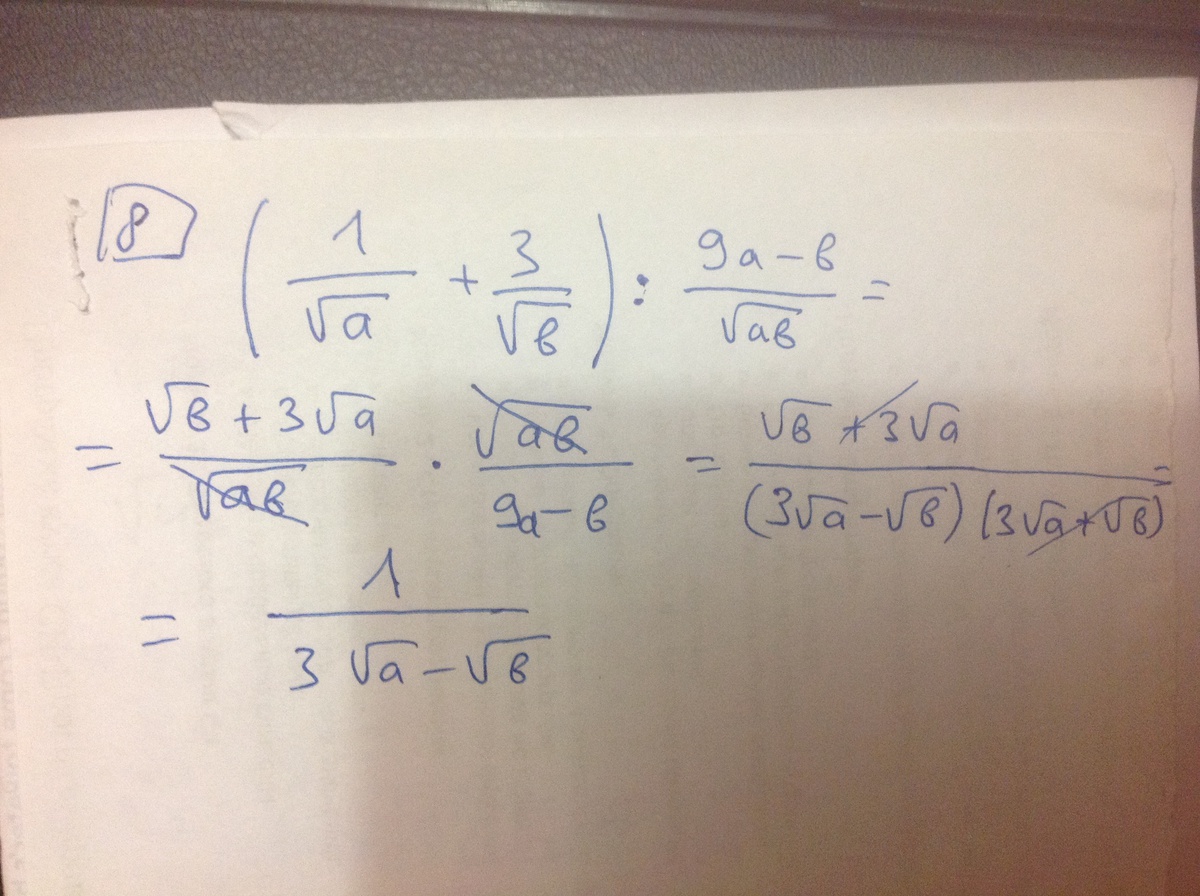 8 (1/√a + 3/√в) : 9a-в/√aв =
= √в + 3√a/√aв · √aв/9a-в = √в + 3√a/(3√a-√в)(3√a+√в) =
= 1/3√a-√в